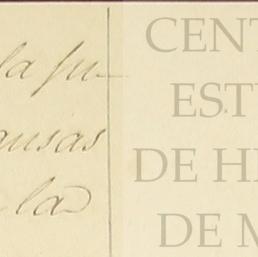 la fu-
ausas
la
CENT
EST
DE HI
DE M